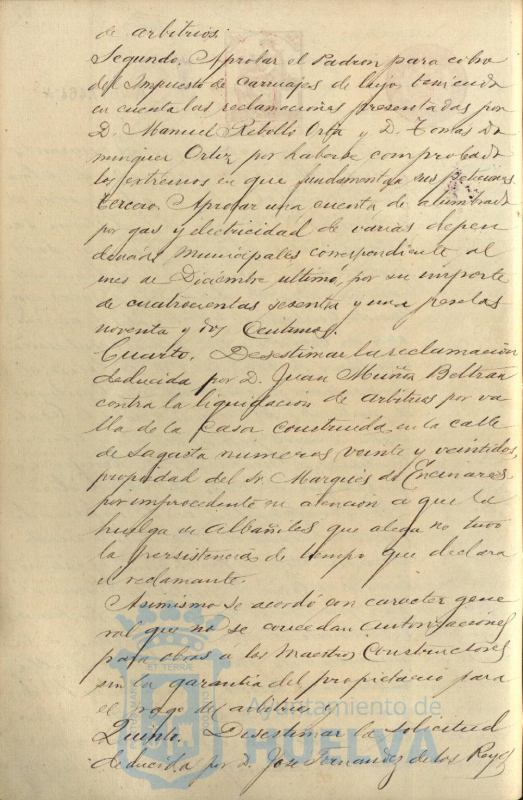 de arbitrios.
Segundo. Aprobar el Padron para cobro
del Impuesto de Carruajes de lujo, teniendo
en cuenta las reclamaciones presentadas por
D. Manuel Rebollo Orta y D. Tomas Do
minguez Ortiz por haberse comprobado
los extremos en que fundamentan sus peticiones
Tercero. Aprobar una cuenta de alumbrado
por gas y electricidad de varias depen
dencias Municipales correspondiente al
mes de Diciembre ultimo, por su importe
de cuatrocientas sesenta y una pesetas
noventa y dos Centimos.
Cuarto. Desestimar la reclamación
deducida por D. Juan Muñoz Beltrán
contra la liquidacion de arbitrios por va
lla de la Casa construida en la calle
de Sagasta numeros veinte y veintidos,
propiedad del Sr. Marqués de Encinares
por improcedente en atencion a que la
huelga de Albañiles que alega no tuvo
la persistencia de tiempo que declara
el reclamante.
Asimismo se acordó con caracter gene
ral que no se concedan autorizaciones
para obras a los Maestros Constructores
sin la garantia del propietario para
el pago de arbitrios.
Quinto. Desestimar la solicitud
deducida por D. Jose Fernandez de los Reyes
Ayuntamiento de
HUELVA